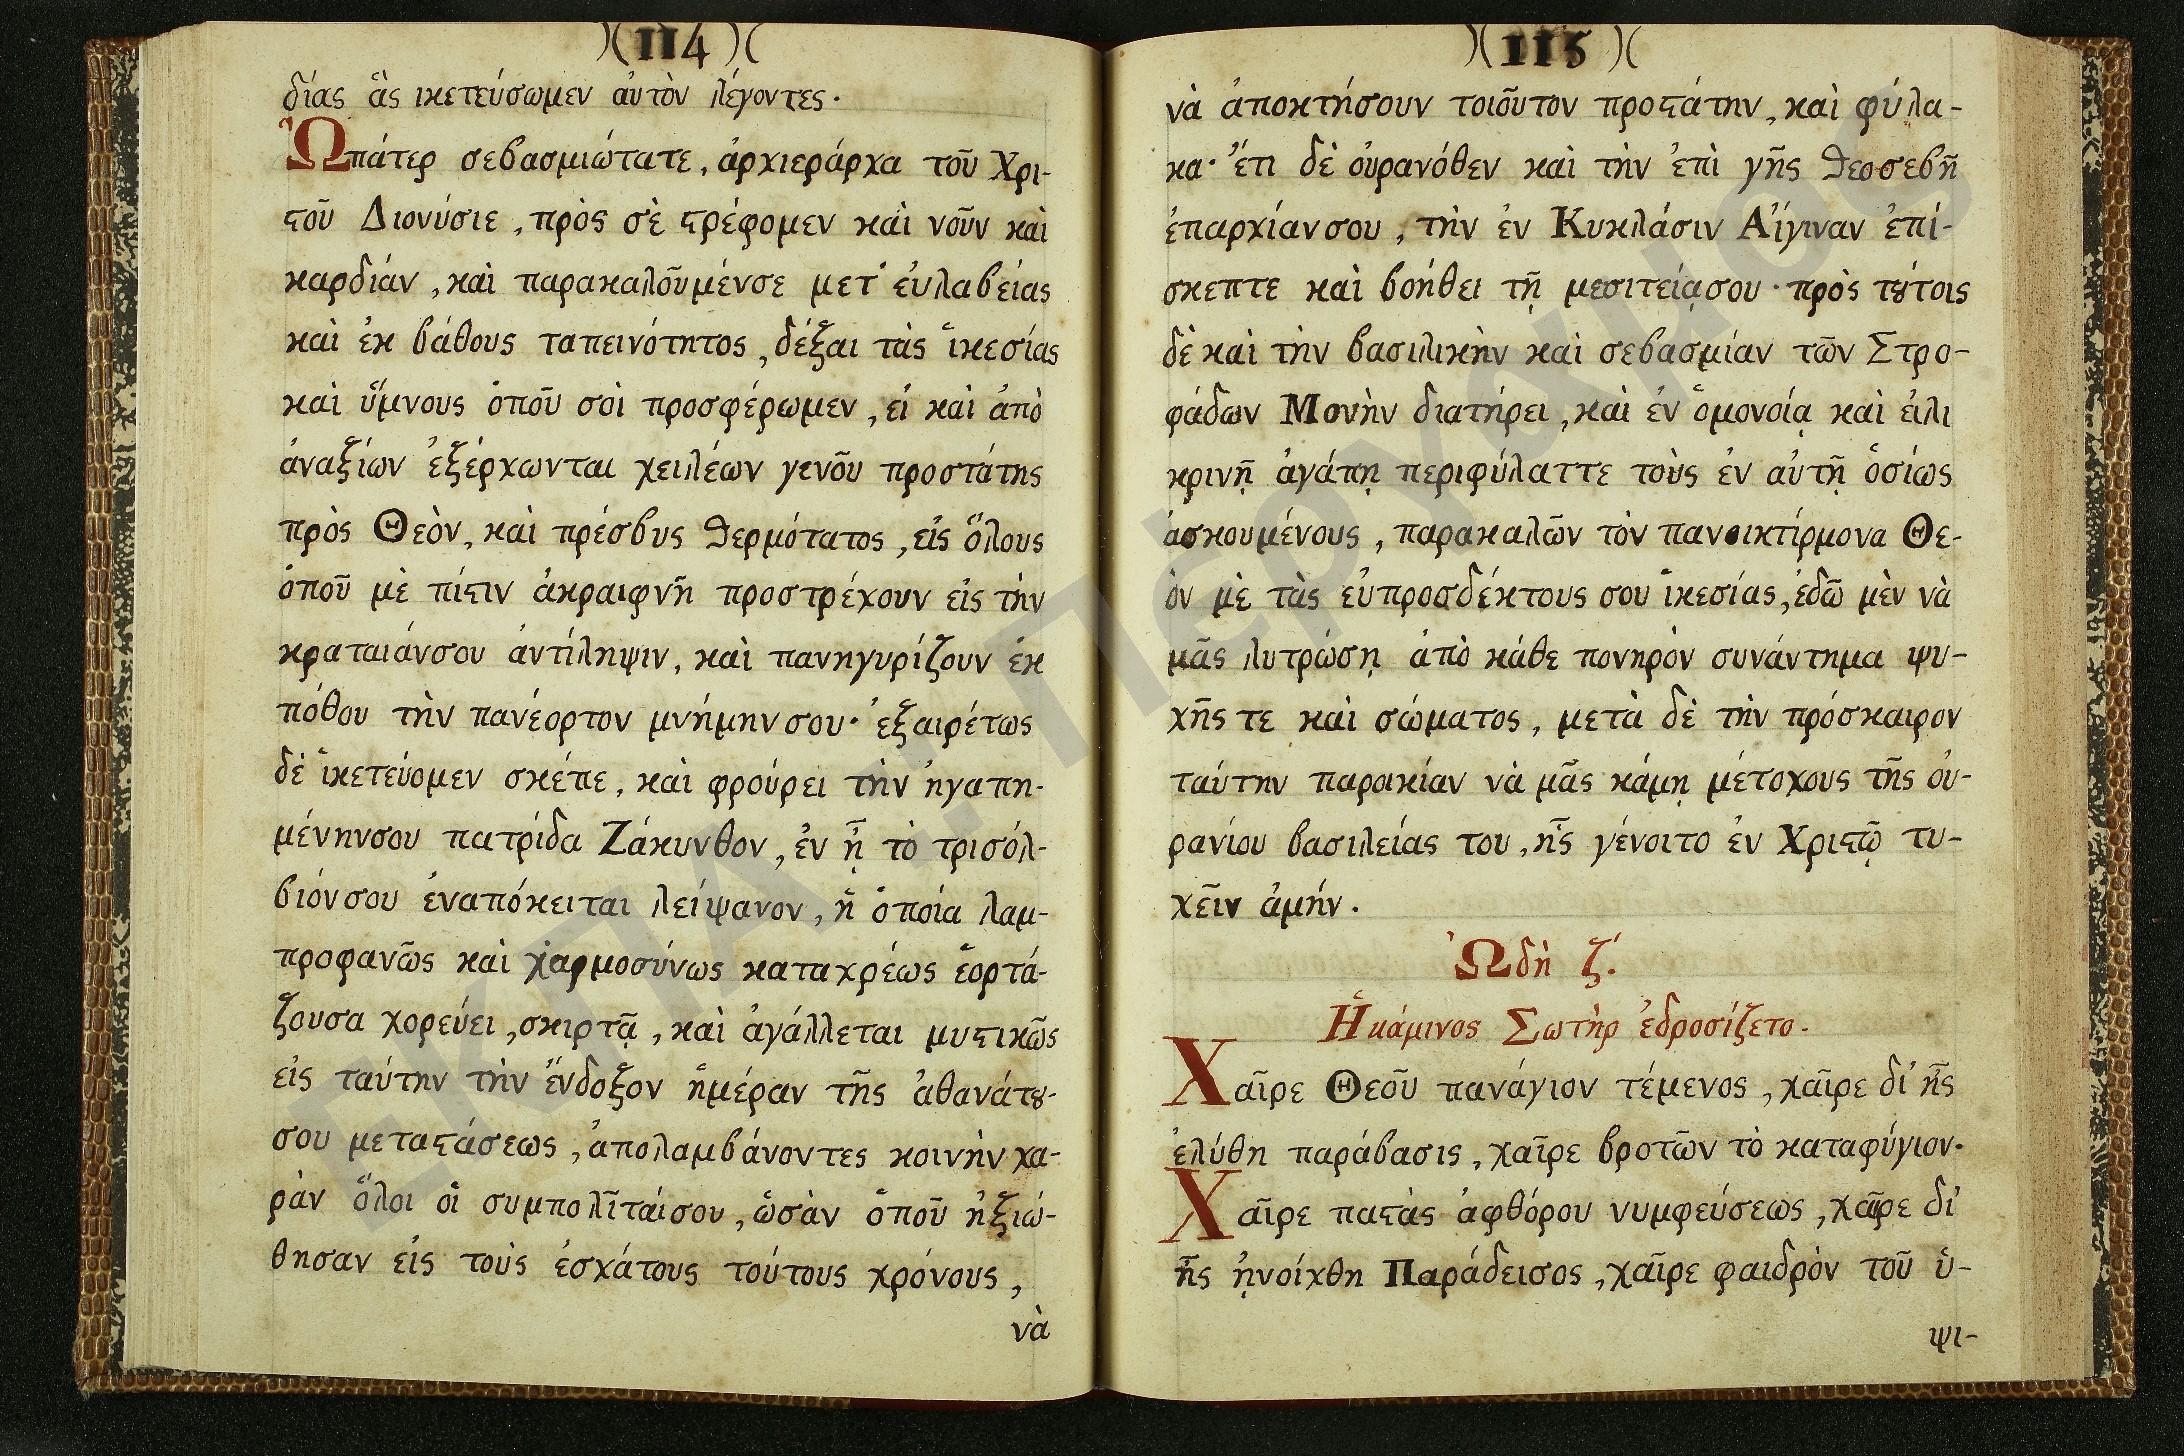 )( 114 )(
δίας ἂς ἱκετεύσωμεν αὐτὸν λέγοντες.
Ὦ πάτερ σεβασμιώτατε, ἀρχιεράρχα τοῦ Χρι-
ϛοῦ Διονύσιε, πρὸς σὲ ϛρέφομεν καὶ νοῦν καὶ
καρδίαν, καὶ παρακαλοῦμένσε μετ' εὐλαβείας
καὶ ἐκ βάθους ταπεινότητος, δέξαι τὰς ἱκεσίας
καὶ ὕμνους ὁποῦ σοὶ προσφέρωμεν, εἰ καὶ ἀπὸ
ἀναξίων ἐξέρχωνται χειλέων γενοῦ προστάτης
πρὸς Θεὸν, καὶ πρέσβυς θερμότατος, εἰς ὅλους
ὁποῦ μὲ πίϛιν ἀκραιφνῆ προστρέχουν εἰς τὴν
κραταιάνσου ἀντίληψιν, καὶ πανηγυρίζουν ἐκ
πόθου τὴν πανέορτον μνήμην σου· ἐξαιρέτως
δὲ ἱκετεύομεν σκέπε, καὶ φρούρει τὴν ἠγαπη-
μένηνσου πατρίδα Ζάκυνθον, ἐν ᾗ τὸ τρισόλ-
βιόνσου ἐναπόκειται λείψανον, ἡ ὁποία λαμ-
προφανῶς καὶ χαρμοσύνως καταχρέως ἑορτά-
ζουσα χορεύει, σκιρτᾷ, καὶ ἀγάλλεται μυϛικῶς
εἰς ταύτην τὴν ἔνδοξον ἡμέραν τῆς ἀθανάτȣ-
σου μεταϛάσεως, ἀπολαμβάνοντες κοινὴν χα-
ρὰν ὅλοι οἱ συμπολῖταίσου, ὡσὰν ὁποῦ ἠξιώ-
θησαν εἰς τοὺς ἐσχάτους τούτους χρόνους,
νὰ
)( 115 )(
νὰ ἀποκτήσουν τοιοῦτον προϛάτην, καὶ φύλα-
κα· ἔτι δὲ οὐρανόθεν καὶ τὴν ἐπὶ γῆς θεοσεβῆ
ἐπαρχίανσου, τὴν ἐν Κυκλάσιν Αἴγιναν ἐπί-
σκεπτε καὶ βοήθει τῇ μεσιτείᾳσου· πρὸς τȣ́τοις
δὲ καὶ τὴν βασιλικὴν καὶ σεβασμίαν τῶν Στρο-
φάδων Μονὴν διατήρει, καὶ ἐν ὁμονοίᾳ καὶ εἰλι
κρινῇ ἀγάπῃ περιφύλαττε τοὺς ἐν αὐτῇ ὁσίως
ἀσκουμένους, παρακαλῶν τὸν πανοικτίρμονα Θε-
ὸν μὲ τὰς εὐπροσδέκτους σου ἱκεσίας, ἐδῶ μὲν νὰ
μᾶς λυτρώσῃ ἀπὸ κάθε πονηρὸν συνάντημα ψυ-
χῆς τε καὶ σώματος, μετὰ δὲ τὴν πρόσκαιρον
ταύτην παροικίαν νὰ μᾶς κάμῃ μέτοχους τῆς οὐ-
ρανίου βασιλείας του, ἧς γένοιτο ἐν Χριϛῷ τυ-
χεῖν ἀμήν.
Ὠδὴ ζ΄.
Ἡ κάμινος Σωτὴρ ἐδροσίζετο.
Χαῖρε Θεοῦ πανάγιον τέμενος, χαῖρε δι' ἧς
ἐλύθη παράβασις, χαῖρε βροτῶν τὸ καταφύγιον.
Χαῖρε παϛὰς ἀφθόρου νυμφεύσεως, χαῖρε δι'
ἧς ἠνοίχθη Παράδεισος, χαῖρε φαιδρὸν τοῦ ὑ-
ψι-